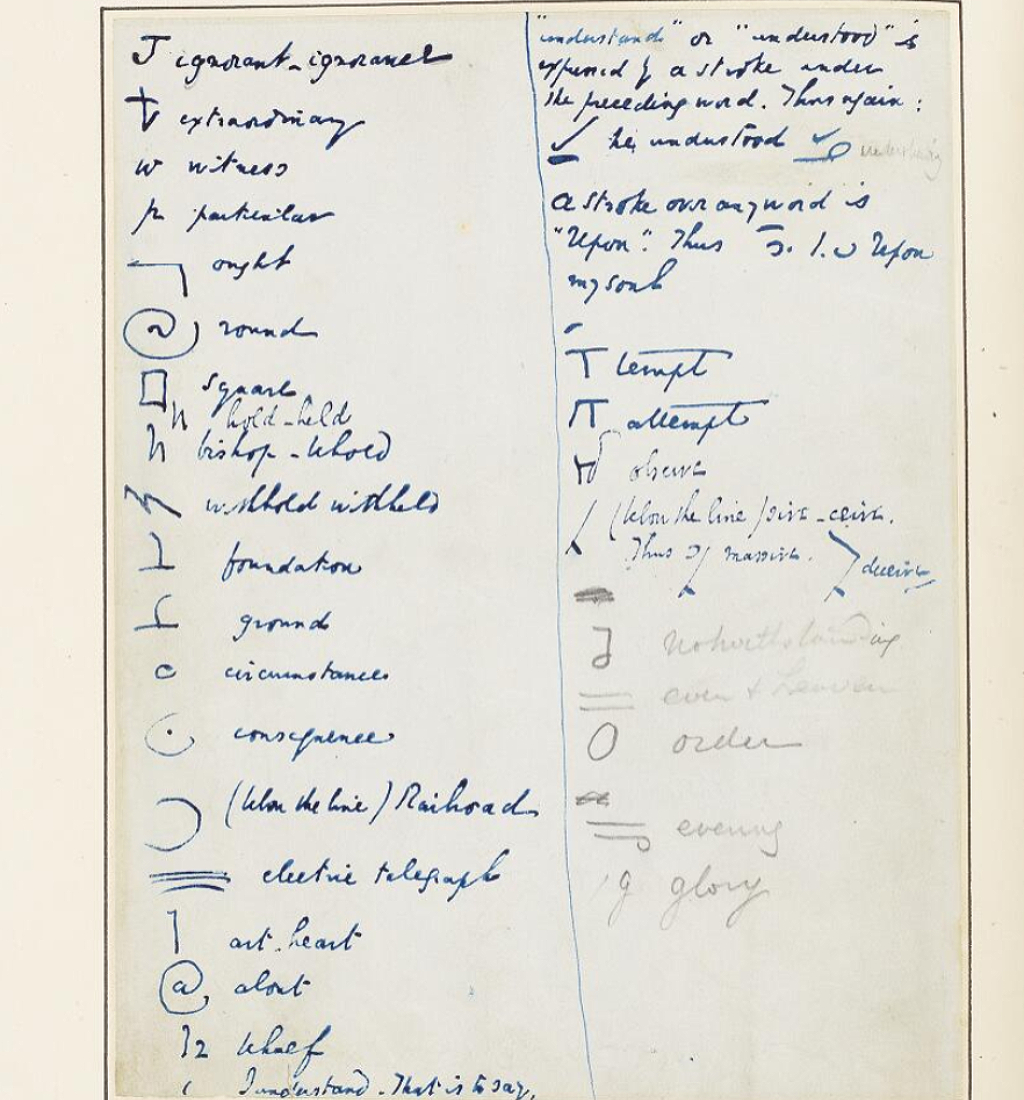 ignorant - ignorance
extraordinary
w witness
particular
ought
round
square
hold - held
bishop - behold
withhold withheld
foundation
ground
circumstances
consequence
(below the line) Railroad
electric telegraph
art - heart
@ about
behalf
I understand - That is to say,
"understand" or "understood" is
expressed by a stroke under
the preceding word. Thus again:
he understood understanding
A stroke over any word is
"Upon". Thus Upon
my soul
T tempt
attempt
observe
(below the line) sive - ceive.
Thus massive. deceive
Nothwithstanding
even & heaven
O order
evening
g glory